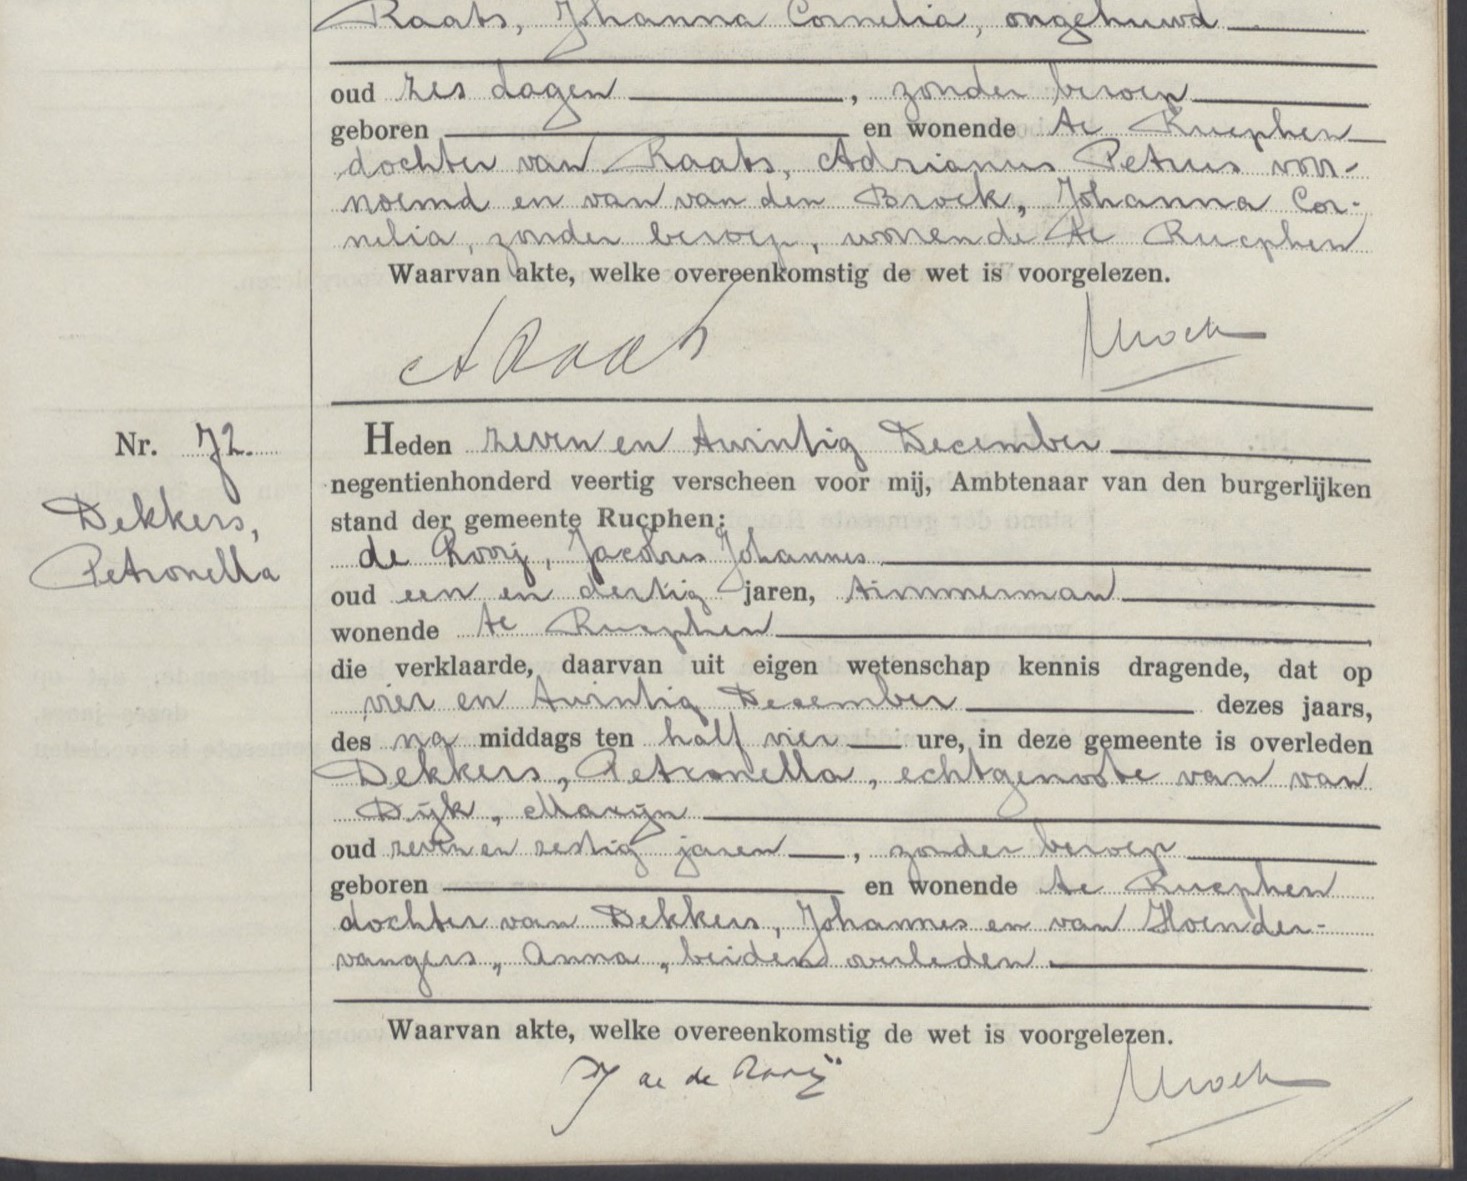 Raats, Johanna Cornelia, ongehuwd
oud zes dagen, zonder beroep
geboren en wonende te Rucphen
dochter van Raats, Adrianus Petrus voor-
noemd en van van den Broek, Johanna Cor-
nelia, zonder beroep, wonende te Rucphen
Waarvan akte, welke overeenkomstig de wet is voorgelezen.
A Raats
Nr. 72.
Dekkers,
Petronella
Heden zeven en twintig December
negentienhonderd veertig verscheen voor mij, Ambtenaar van den burgerlijken
stand der gemeente Rucphen:
de Rooij, Jacobus Johannes
oud een en dertig jaren, timmerman
wonende te Rucphen
die verklaarde, daarvan uit eigen wetenschap kennis dragende, dat op
vier en twintig December dezes jaars,
des na middags ten half vier ure, in deze gemeente is overleden
Dekkers, Petronella, echtgenoote van van
Dijk, Marijn
oud zeven en zestig jaren, zonder beroep
geboren en wonende te Rucphen
dochter van Dekkers, Johannes en van Hoender-
vangers, Anna, beiden overleden.
Waarvan akte, welke overeenkomstig de wet is voorgelezen.
de Rooij